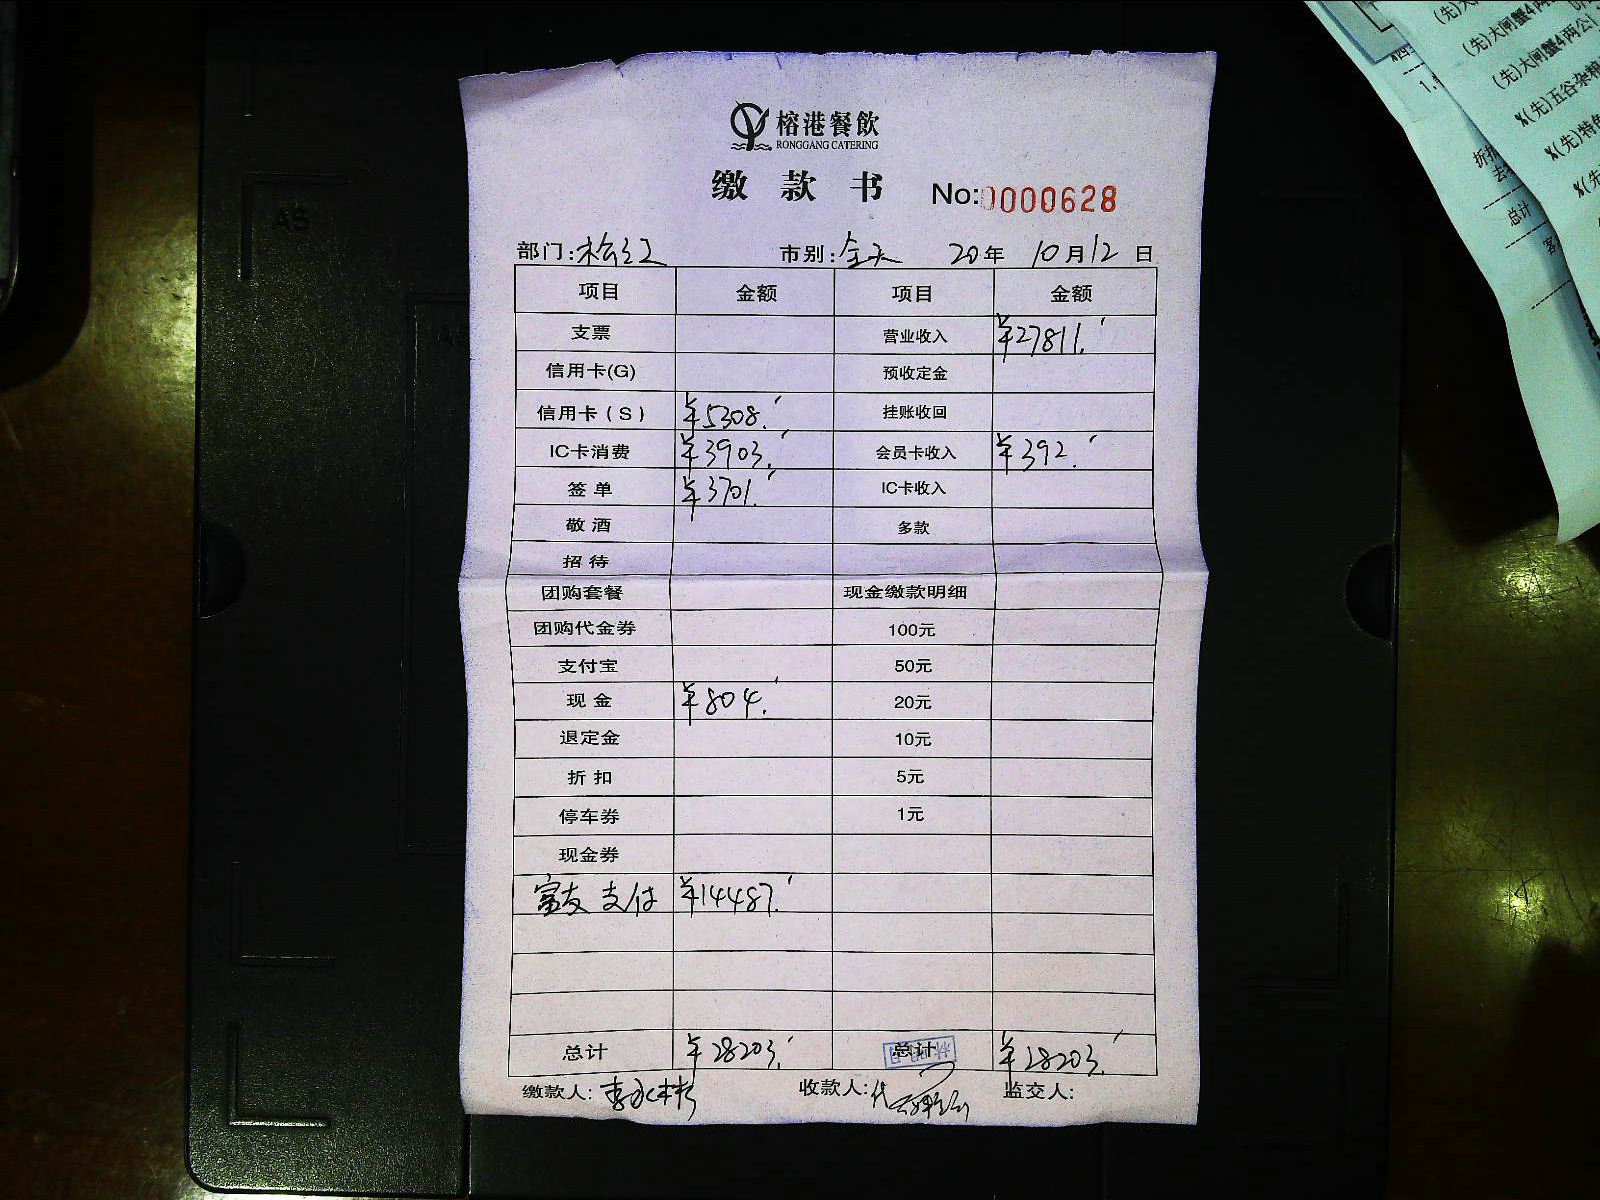 榕港餐飲
RONGGANG CATERING
缴款书 No:0000628
部门: 市别:全天 20年 10月12日
项目 金额 项目 金额
支票 营业收入 ¥27811.
信用卡(G) 预收定金
信用卡(S) ¥5308. 挂账收回
IC卡消费 ¥3903. 会员卡收入 ¥392.
签单 ¥3701. IC卡收入
敬酒 多款
招待
团购套餐 现金缴款明细
团购代金券 100元
支付宝 50元
现金 ¥804. 20元
退定金 10元
折扣 5元
停车券 1元
现金券
富友支付 ¥14487.
总计 ¥28203. 总计 ¥28203.
缴款人:李永彬 收款人: 监交人:
(先)大闸蟹4两
(先)大闸蟹4两公
%(先)五谷杂粮
%(先)特色
%(先)
总计